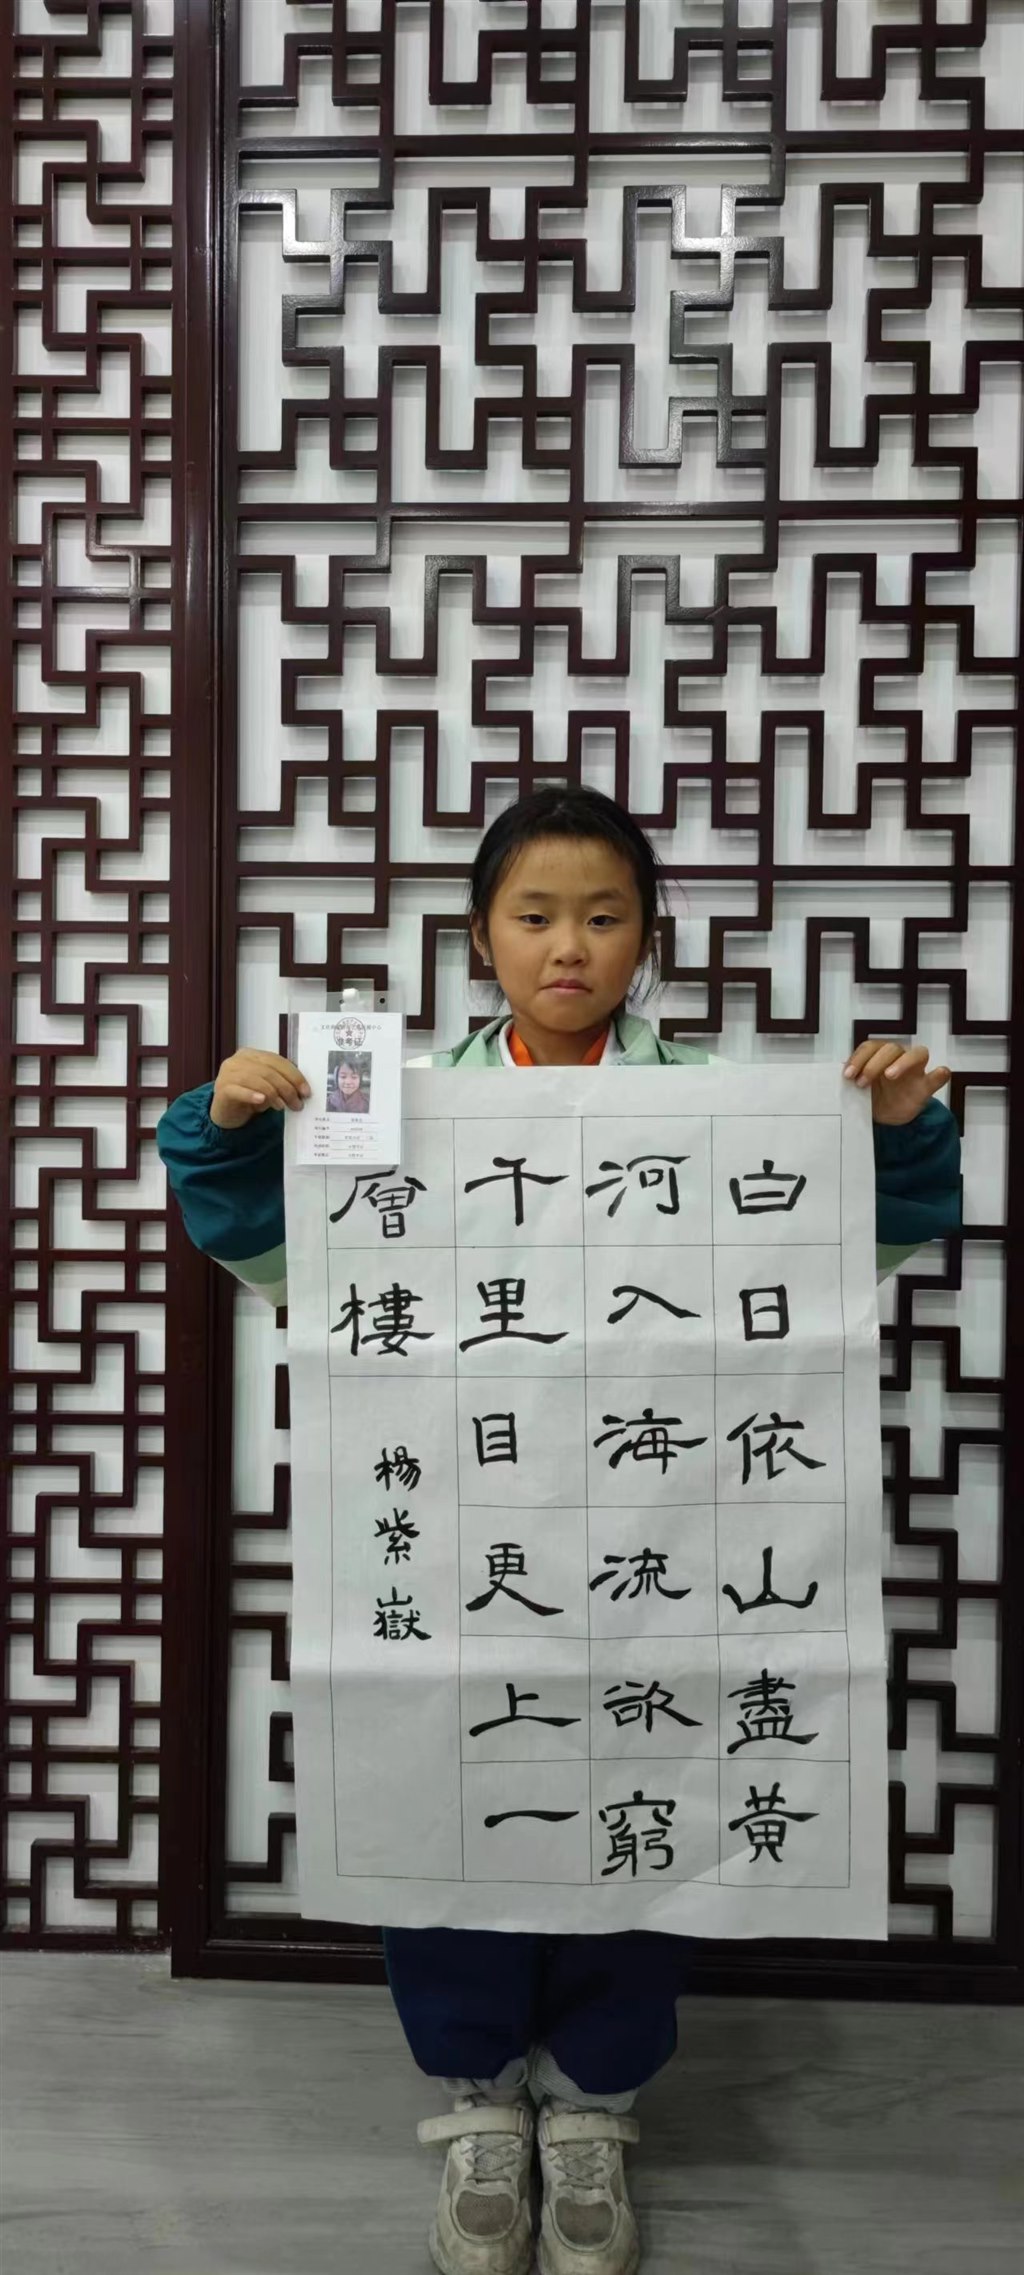 白日依山盡黃
河入海流欲窮
千里目更上一
層樓
楊紫嶽
准考证